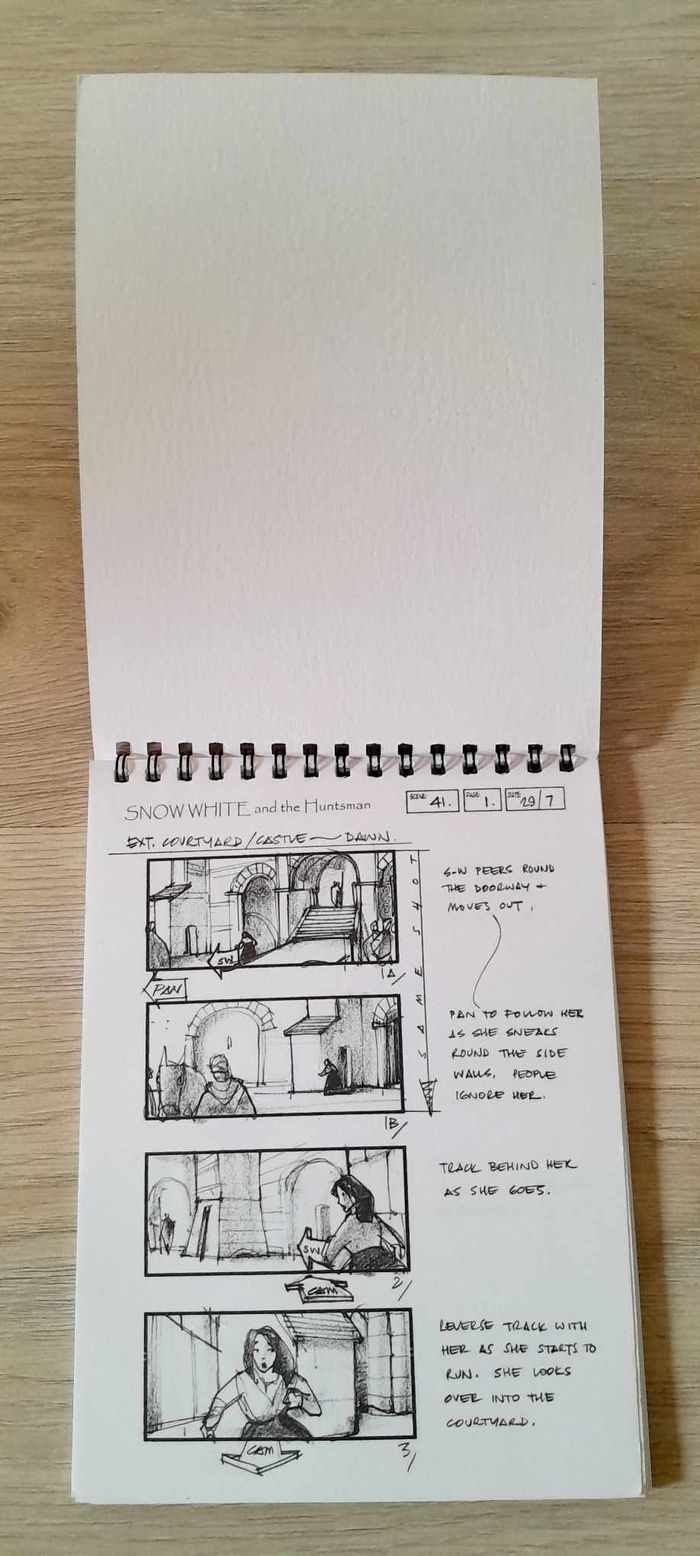 SNOW WHITE and the Huntsman
SCENE: 41.
PAGE: 1.
DATE: 29/7
EXT. COURTYARD/CASTLE ~ DAWN.
S-W PEERS ROUND
THE DOORWAY +
MOVES OUT.
SW
1A/
PAN
SAME SHOT
PAN TO FOLLOW HER
AS SHE SNEAKS
ROUND THE SIDE
WALLS. PEOPLE
IGNORE HER.
1B/
TRACK BEHIND HER
AS SHE GOES.
SW
2/
CAM
REVERSE TRACK WITH
HER AS SHE STARTS TO
RUN. SHE LOOKS
OVER INTO THE
COURTYARD.
CAM
3/